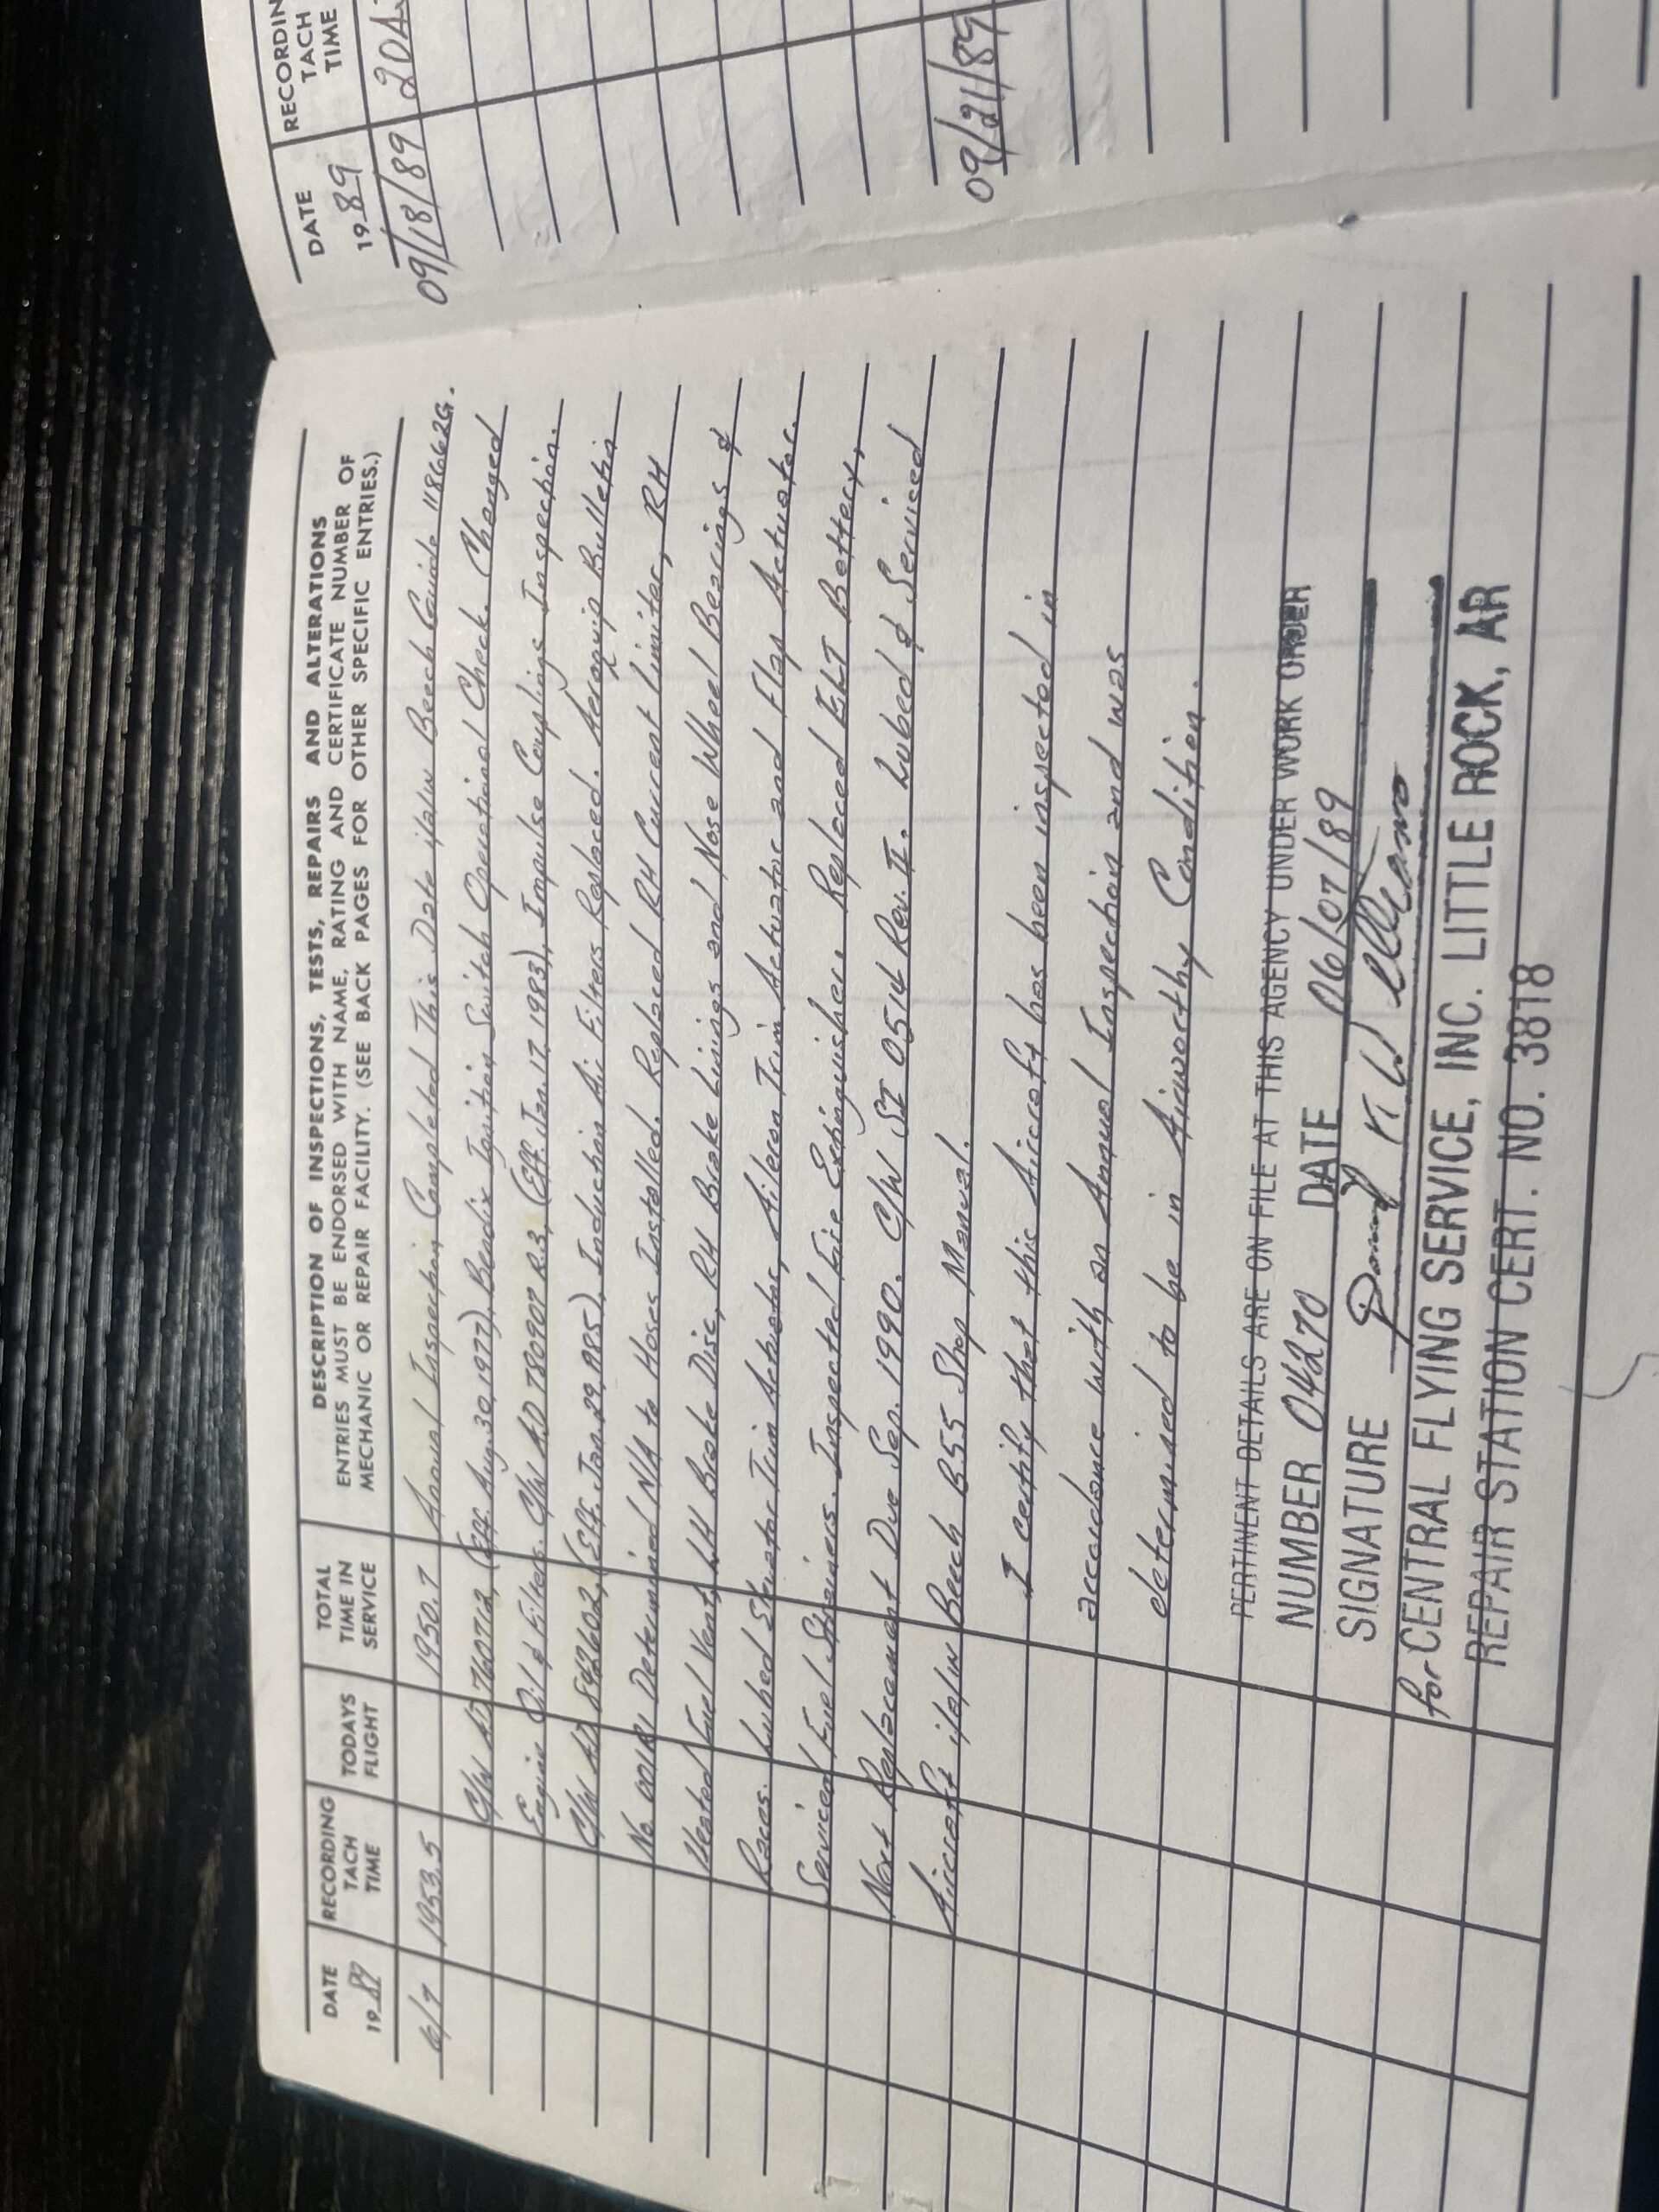 DATE
19 89
RECORDING
TACH
TIME
TODAYS
FLIGHT
TOTAL
TIME IN
SERVICE
DESCRIPTION OF INSPECTIONS, TESTS, REPAIRS AND ALTERATIONS
ENTRIES MUST BE ENDORSED WITH NAME, RATING AND CERTIFICATE NUMBER OF
MECHANIC OR REPAIR FACILITY. (SEE BACK PAGES FOR OTHER SPECIFIC ENTRIES.)
6/7 1953.5 1950.7 Annual Inspection Completed This Date i/a/w Beech Guide 118662G.
C/W AD 760712, (Eff. Aug. 30, 1977), Bendix Ignition Switch Operational Check. Changed
Engine Oil & Filters. C/W AD 780907 R.3, (Eff. Jan. 17, 1983), Impulse Couplings Inspection.
C/W AD 842602, (Eff. Jan. 29, 1985), Induction Air Filters Replaced. Aeroquip Bulletin
No. 001R1 Determined N/A to Hoses Installed. Replaced RH Current Limiter, RH
Heated Fuel Vent, LH Brake Disc, RH Brake Linings and Nose Wheel Bearings &
Races. Lubed Elevator Trim Actuator, Aileron Trim Actuator and Flap Actuator.
Serviced Fuel Strainers. Inspected Fire Extinguisher. Replaced ELT Battery,
Next Replacement Due Sep. 1990. C/W SI 0514 Rev. II. Lubed & Serviced
Aircraft i/a/w Beech B55 Shop Manual.
I certify that this Aircraft has been inspected in
accordance with an Annual Inspection and was
determined to be in Airworthy Condition.
PERTINENT DETAILS ARE ON FILE AT THIS AGENCY UNDER WORK ORDER
NUMBER 04270 DATE 06/07/89
SIGNATURE
for CENTRAL FLYING SERVICE, INC. LITTLE ROCK, AR
REPAIR STATION CERT. NO. 3818
DATE
19 89
RECORDIN
TACH
TIME
09/18/89 204
09/21/89